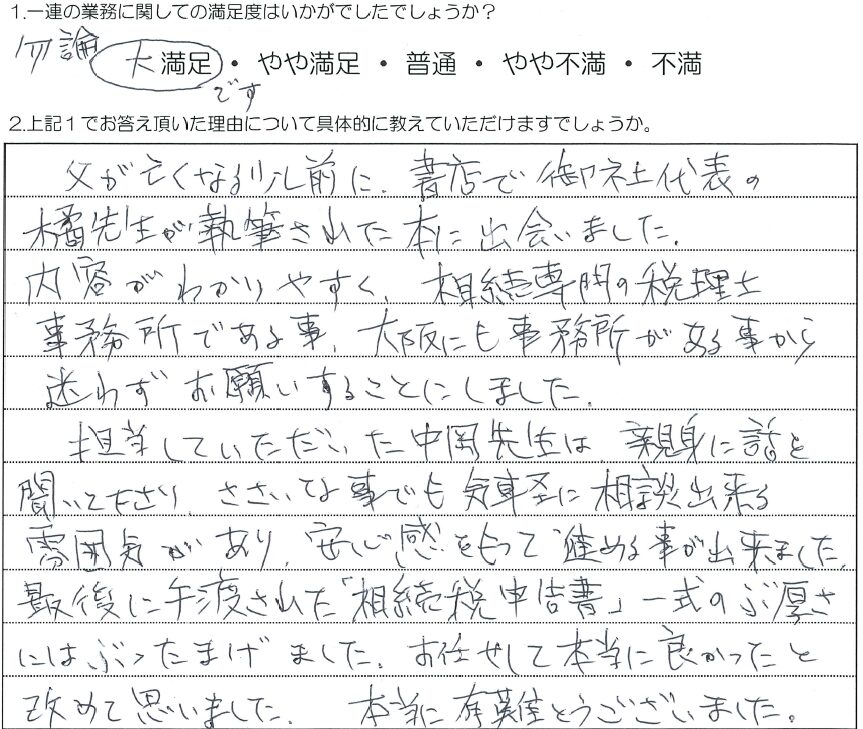 1.一連の業務に関しての満足度はいかがでしたでしょうか?
勿論 大満足 ・ やや満足 ・ 普通 ・ やや不満 ・ 不満
です
2.上記1でお答え頂いた理由について具体的に教えていただけますでしょうか。
父が亡くなる少し前に、書店で御社代表の
橘先生が執筆された本に出会いました。
内容がわかりやすく、相続専門の税理士
事務所である事、大阪にも事務所がある事から
迷わずお願いすることにしました。
担当していただいた中岡先生は親身に話を
聞いて下さり、ささいな事でも気軽に相談出来る
雰囲気があり、安心感をもって進める事が出来ました。
最後に手渡された「相続税申告書」一式のぶ厚さ
にはぶったまげました。お任せして本当に良かったと
改めて思いました。 本当に有難とうございました。